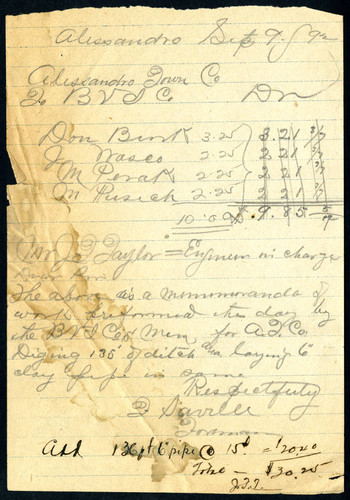 Alessandro Sep 9 / 92
Alessandro Town Co
To B V I Co. Dr
Don Bink 3.25 3.21 3/7
J Wasco 2.25 2 21 3/7
M Perak 2.25 2 21 3/7
M Rusich 2.25 2 21 3/7
10.00 $ 9.85 5/7
Mr J. T. Taylor = Engineer in charge
Dear Sir
The above is a memmoranda of
work preformed this day by
the B V I Co Men for A. T. Co.
Diging 136' of ditch and laying 6"
clay pipe in same
Respectfuly
Z Saville
Forman
Add 136 ft 6" pipe @ 15¢ = $20.40
Total — $30.25
J.T.T.